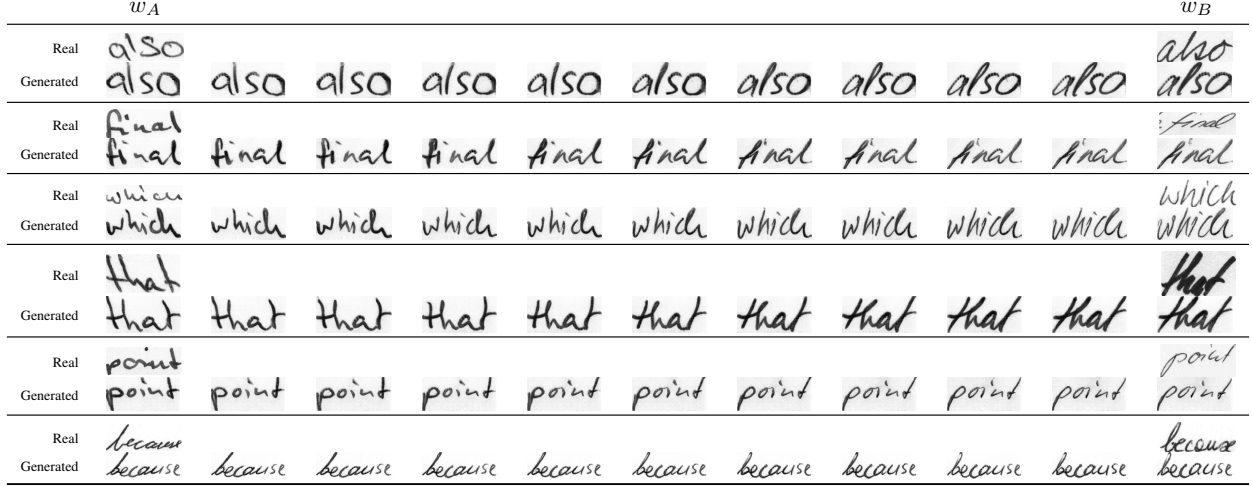 w_A w_B
Real also also
Generated also also also also also also also also also also also
Real final final
Generated final final final final final final final final final final final
Real which which
Generated which which which which which which which which which which which
Real that that
Generated that that that that that that that that that that that
Real point point
Generated point point point point point point point point point point point
Real because because
Generated because because because because because because because because because because because